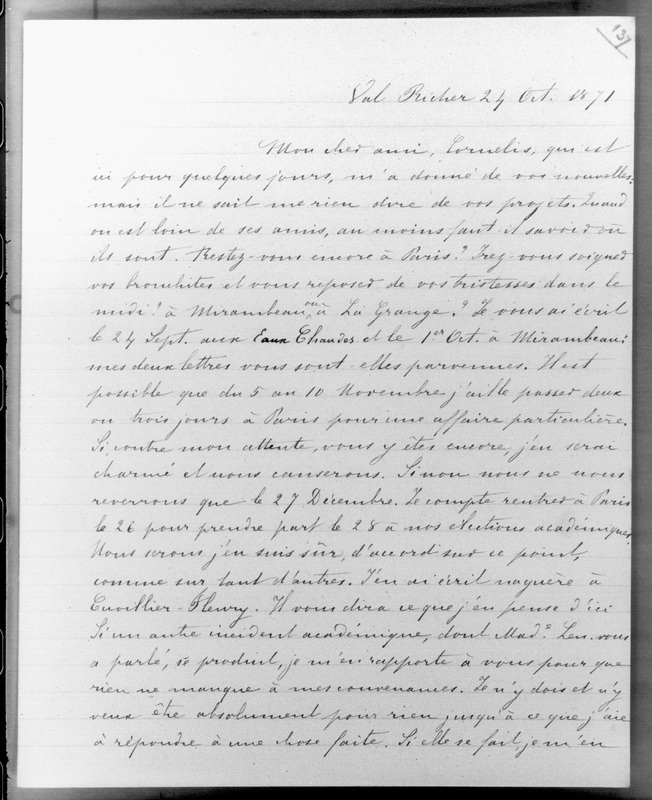 137
Val Richer 24 Oct. 1871
Mon cher ami, Cornelis, qui est
ici pour quelques jours, m'a donné de vos nouvelles,
mais il ne sait me rien dire de vos projets. Quand
on est loin de ses amis, au moins faut-il savoir où
ils sont. Restez-vous encore à Paris ? Irez-vous soigner
vos bronchites et vous reposer de vos tristesses dans le
midi ? à Mirambeau ou à La Grange ? Je vous ai écrit
le 24 Sept. aux Eaux Chaudes et le 1er Oct. à Mirambeau :
mes deux lettres vous sont-elles parvenues. Il est
possible que du 5 au 10 Novembre j'aille passer deux
ou trois jours à Paris pour une affaire particulière.
Si, contre mon attente, vous y êtes encore, j'en serai
charmé et nous causerons. Sinon nous ne nous
reverrons que le 27 Décembre. Je compte rentrer à Paris
le 26 pour prendre part le 28 à nos élections académiques.
Nous serons j'en suis sûr, d'accord sur ce point,
comme sur tant d'autres. J'en ai écrit naguère à
Cuvillier-Fleury. Il vous dira ce que j'en pense d'ici
Si un autre incident académique, dont Made Len. vous
a parlé, se produit, je m'en rapporte à vous pour que
rien ne manque à mes convenances. Je n'y dois et n'y
veux être absolument pour rien jusqu'à ce que j'aie
à répondre à une chose faite. Si elle se fait je m'en